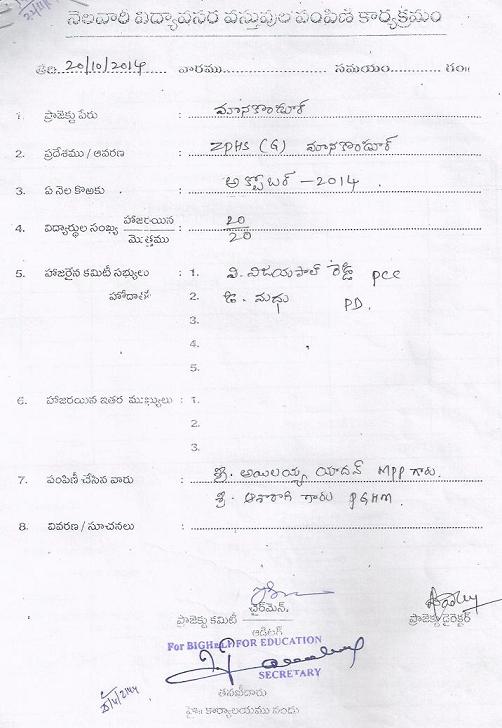 నెలవారీ విద్యావసర వస్తువుల పంపిణీ కార్యక్రమం
తేది. 20/10/2014 వారము సమయం గం॥
1. ప్రాజెక్టు పేరు : మానకొండూర్
2. ప్రదేశము / ఆవరణ : ZPHS (G) మానకొండూర్
3. ఏ నెల కొఱకు : అక్టోబర్ - 2014
4. విద్యార్థుల సంఖ్య హాజరయిన : 20
మొత్తము 20
5. హాజరైన కమిటీ సభ్యులు : 1. వి. విజయపాల్ రెడ్డి PCC
హోదాతో 2. డి. మధు PD.
3.
4.
5.
6. హాజరయిన ఇతర ముఖ్యులు : 1.
2.
3.
7. పంపిణీ చేసిన వారు : శ్రీ. అయిలయ్య యాదవ్ MPP గారు.
శ్రీ. ఆశారాణి గారు PGHM.
8. వివరణ / సూచనలు :
ప్రాజెక్టు కమిటీ చైర్‌మెన్, ప్రాజెక్టు డైరెక్టర్
ఆడిటర్
For BIGHELP FOR EDUCATION
SECRETARY
తనఖీదారు
హైః కార్యాలయము నందు